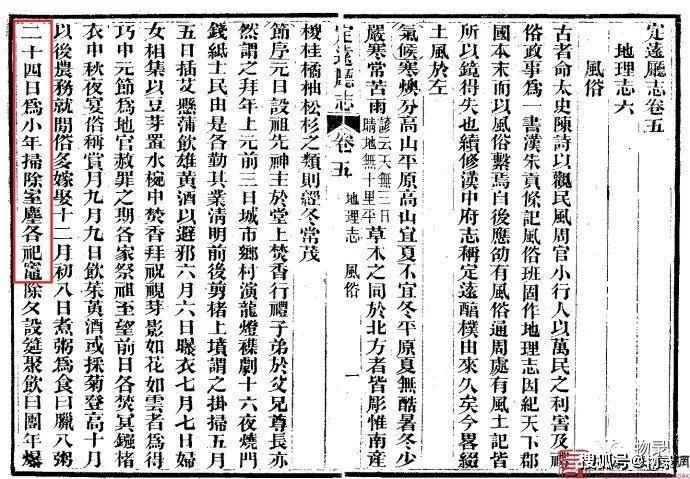 定遠廳志卷五
地理志六
風俗
古者命太史陳詩以觀民風周官小行人以萬民之利害及禮
俗政事爲一書漢朱貢條記風俗班固作地理志因紀天下郡
國本末而以風俗繫焉自後應劭有風俗通周處有風土記皆
所以鏡得失也續修漢中府志稱定遠醕樸由來久矣今畧綴
土風於左
氣候寒燠分高山平原高山宜夏不宜冬平原夏無酷暑冬少
嚴寒常苦雨諺云天無三日晴地無十里平草木之同於北方者皆彫惟南產
定遠廳志 卷五 地理志 風俗 一
椶桂橘柚松杉之類則經冬常茂
節序元日設祖先神主於堂上焚香行禮子弟於父兄尊長亦
然謂之拜年上元前三日城市鄉村演龍燈襍劇十六夜燒門
錢紙士民由是各勤其業清明前後剪楮上墳謂之掛掃五月
五日插艾懸蒲飲雄黃酒以避邪六月六日曝衣七月七日婦
女相集以豆芽置水椀中焚香拜祝視芽影如花如雲者爲得
巧中元節爲地官赦罪之期各家祭祖至望前日各焚冥鏹楮
衣中秋夜宴俗稱賞月九月九日飲茱黃酒或採菊登高十月
以後農務就閒俗多嫁娶十二月初八日煮粥爲食曰臘八粥
二十四日爲小年掃除室塵各祀竈除夕設筵聚飲曰團年爆
物录